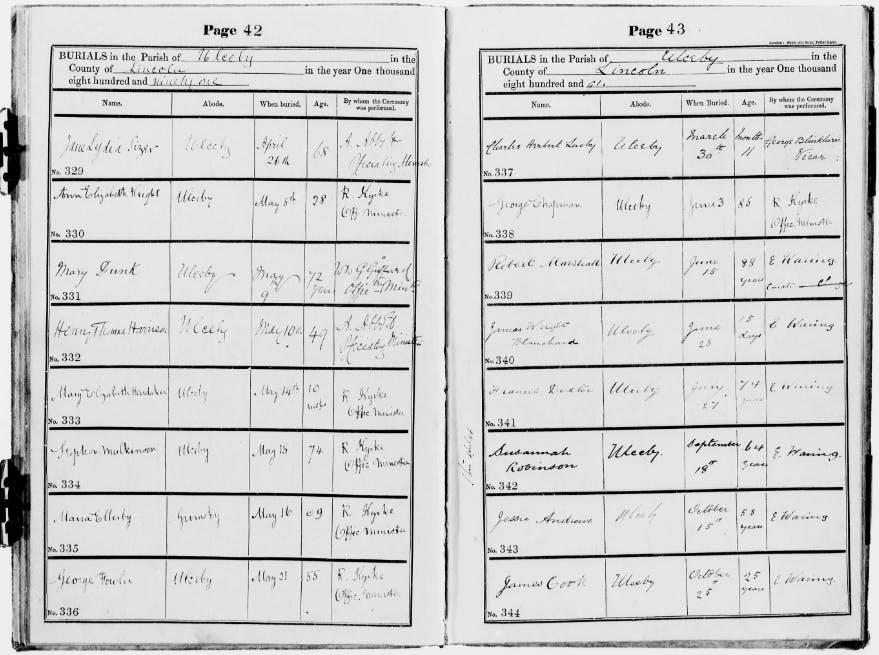 Page 42
BURIALS in the Parish of Ulceby in the
County of Lincoln in the year One thousand
eight hundred and ninety one
Name. Abode. When buried. Age. By whom the Ceremony was performed.
Jane Lydia Sizer Ulceby April 26th 68 A. Abbott
Officiating Minister
No. 329
Ann Elizabeth Wright Ulceby May 8th 28 R Kyrke
Offic Minister
No. 330
Mary Dunk Ulceby May 9th 72 years Wm G
Officiating Minister
No. 331
Henry Thomas Ulceby May 10th 49 A. Abbott
Officiating Minister
No. 332
Mary Elizabeth Ulceby May 14th 10 mths R Kyrke
Offic Minister
No. 333
Stephen Ulceby May 15 74 R Kyrke
Offic Minister
No. 334
Maria Ellerby Grimsby May 16 69 R Kyrke
Offic Minister
No. 335
George Fowler Ulceby May 21 55 R Kyrke
Offic Minister
No. 336
Page 43
BURIALS in the Parish of Ulceby in the
County of Lincoln in the year One thousand
eight hundred and 91.
Name. Abode. When Buried. Age. By whom the Ceremony was performed.
Charles Herbert Ulceby March 30th Months 11 George
Vicar
No. 337
George Chapman Ulceby June 3 85 R Kyrke
Offic Minister
No. 338
Robert Marshall Ulceby June 15 88 years E Waring
Curate
No. 339
James Wright
Blanchard Ulceby June 23 15 days E Waring
No. 340
Francis Dexter Ulceby July 27th 74 years E Waring
No. 341
Susannah
Robinson Ulceby. September 18th 64 years E. Waring.
No. 342
Jessie Andrews Ulceby October 15th 58 years E Waring
No. 343
James Cook Ulceby October 25th 25 years E Waring.
No. 344